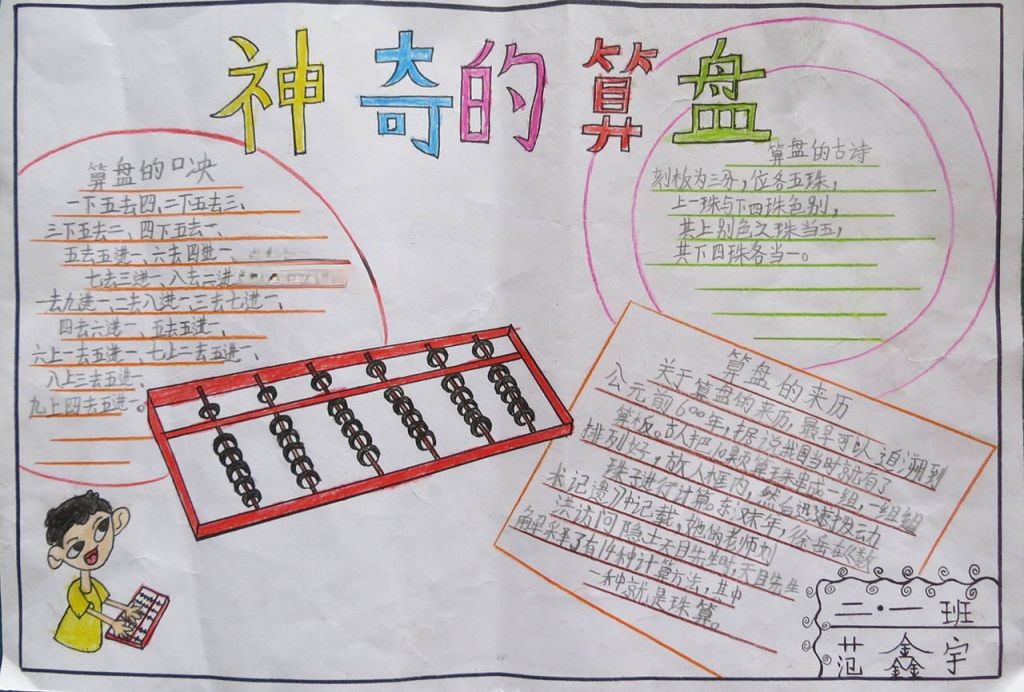 神奇的算盘
算盘的口决
一下五去四、二下五去三、
三下五去二、四下五去一、
五去五进一、六去四进一、
七去三进一、八去二进
一去九进一、二去八进一、三去七进一、
四去六进一、五去五进一、
六上一去五进一、七上二去五进一、
八上三去五进一、
九上四去五进一。
算盘的古诗
刻板为三分，位各五珠，
上一珠与下四珠色别，
其上别色之珠当五，
其下四珠各当一。
算盘的来历
关于算盘的来历，最早可以追溯到
公元前600年，据说我国当时就有了
算板。古人把10颗算珠串成一组，一组组
排列好，放入框内，然后迅速拨动
珠子进行计算。东汉末年，徐岳在《数
术记遗》中记载，他的老师刘
洪访问隐士天目先生时，天目先生
解释了有14种计算方法，其中
一种就是珠算。
二·一班
范鑫宇